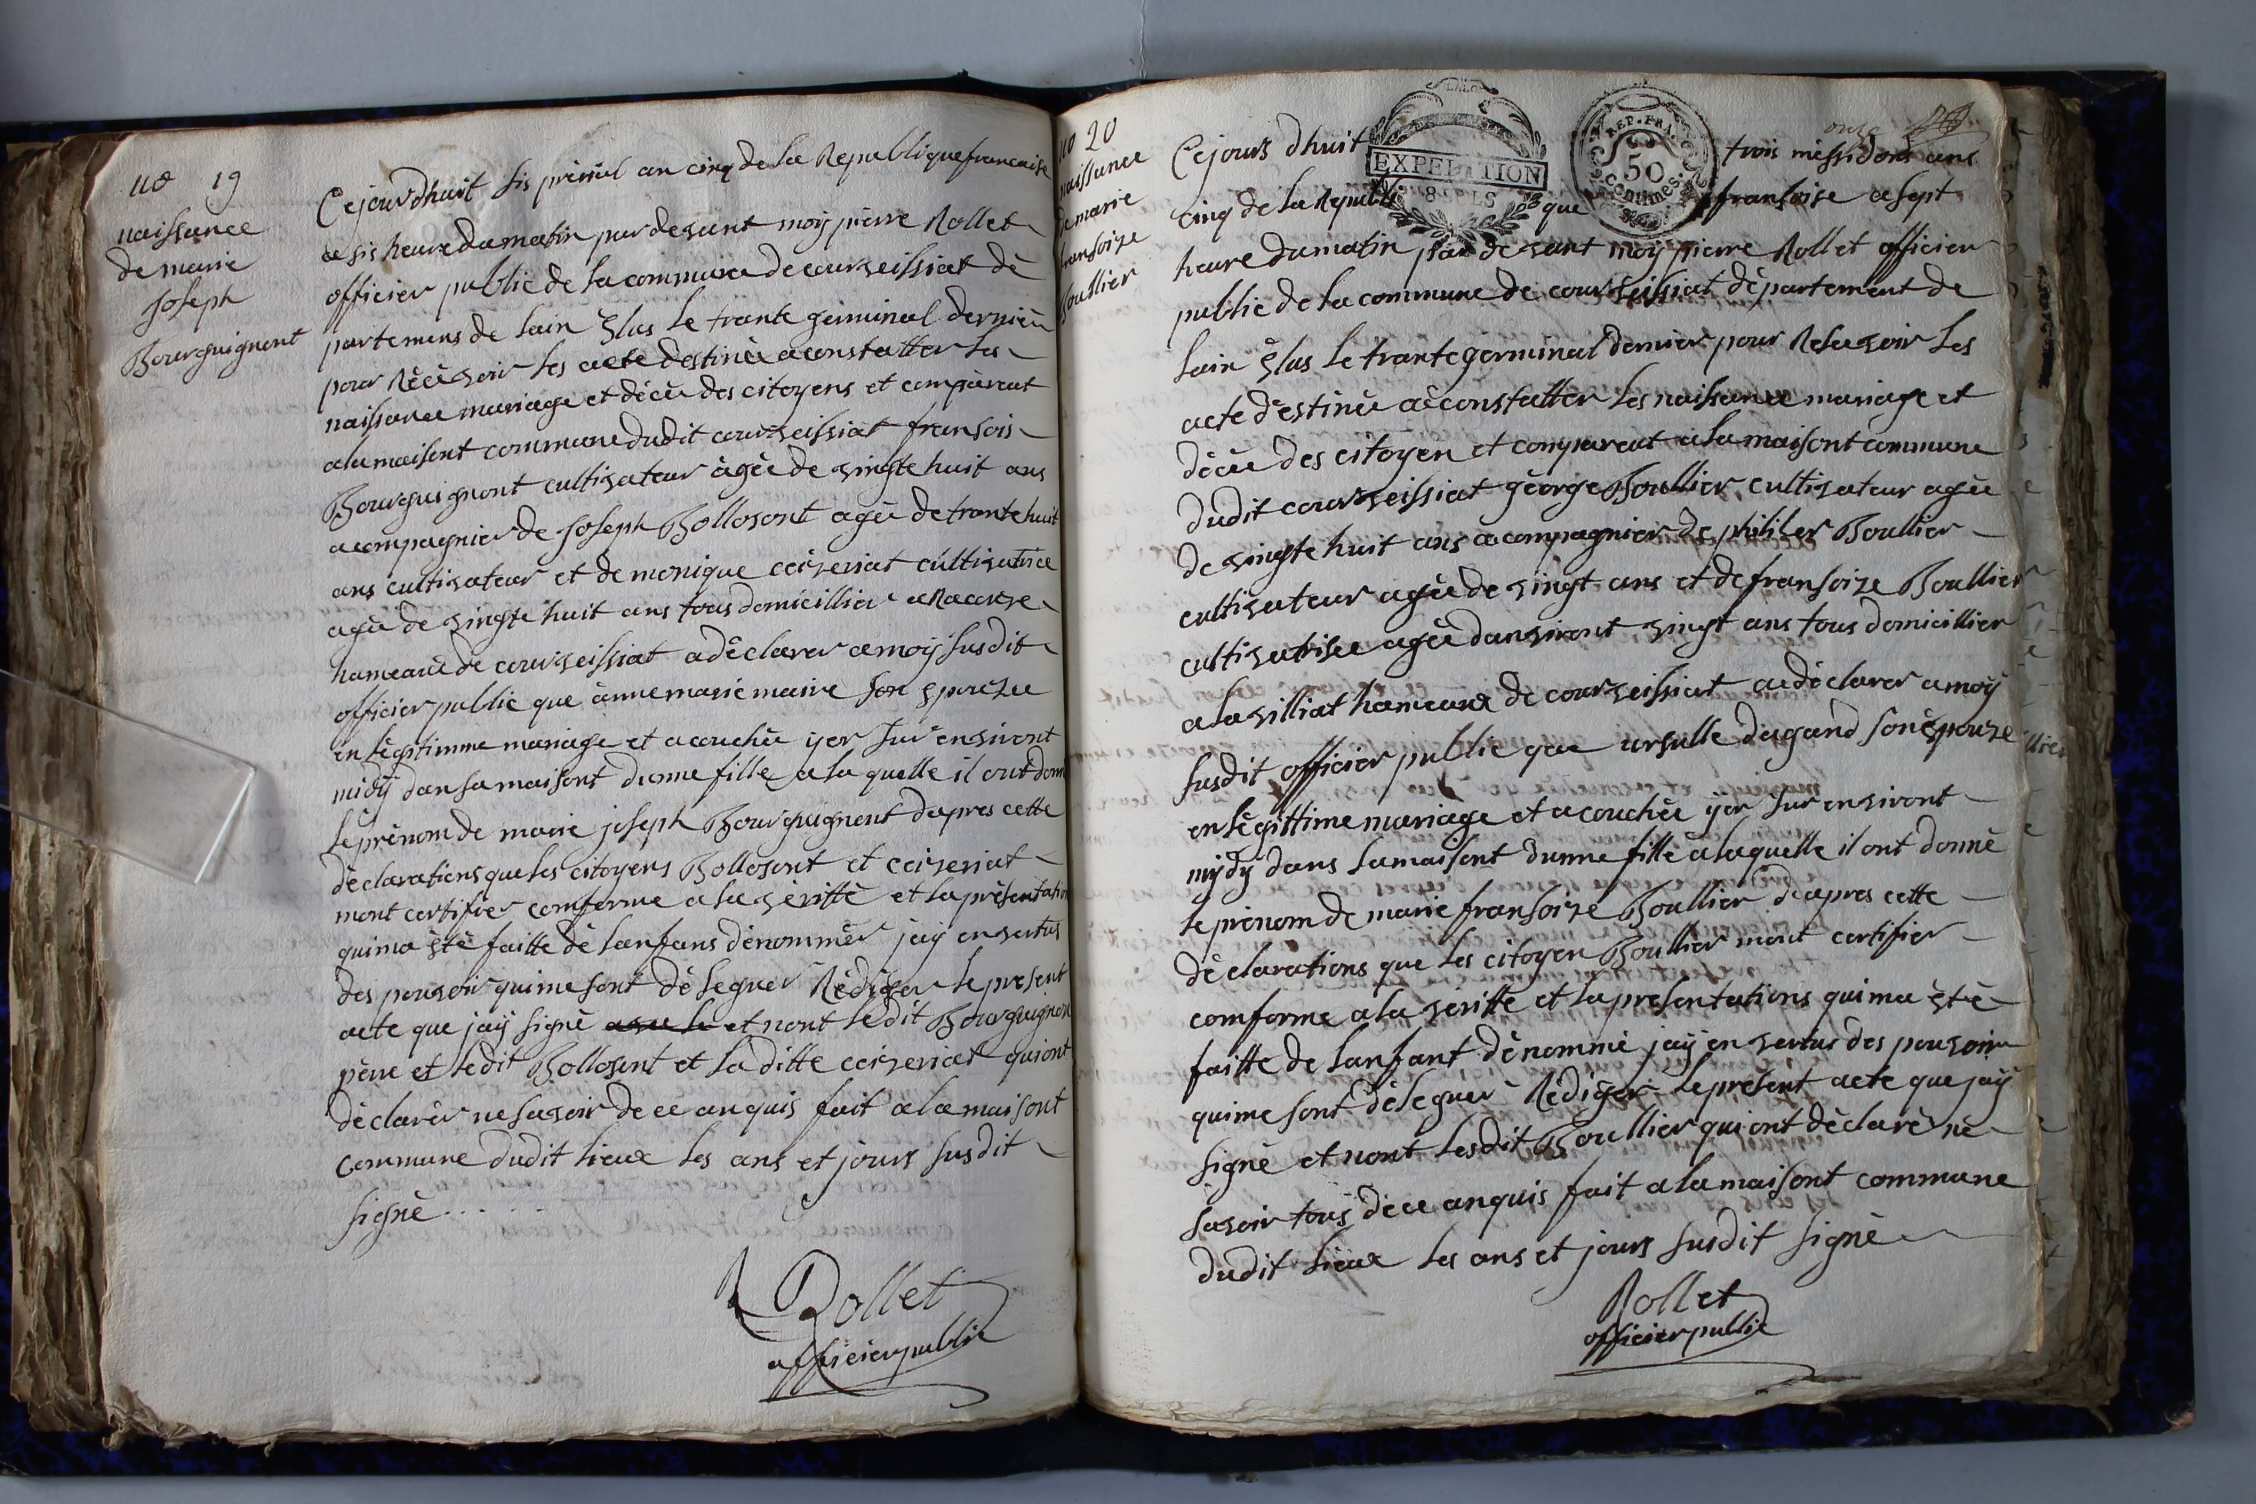 no 19
naissance
de marie
Joseph
Bourguignont
Cejourdhuit sis prèrial an cinq de la Republique francaise
a sis heure du matin par devant moÿ pièrre Rollet
officier public de la commune de courveissiat dè
partemens de lain Élus le trante gèrminal dernièr
pour Rècèvoir les acte destinèe a constatter les
naissance mariage et dècèe des citoyens et comparent
a la maisont commune dudit courveissiat fransois
Bourguignont cultivateur àgèe de vingte huit ans
acompagnier de Joseph Bollosont agèe de trante huit
ans cultivateur et de monique ceizeriat cultivatrice
agèe de vingte huit ans tous domicillier a Racouze
hameaue de courveissiat a dèclarer a moÿ susdit
officier public que ànne marie maire son Épouzee
en lègitimme mariage et acouchèe ÿer sur environt
midÿ dans sa maisont dunne fille a la quelle il ont donn
le prènom de marie joseph Bourguignont dapres cette
dèclarations que les citoyens Bollosont et ceizeriat
mont certifier comforme a la vèrittè et la prèsentation
qui ma Ètè faitte dè lanfans dènommèr jaÿ en vertus
des pouvoir qui me sont dèleguer Rèdiger le present
acte que jaÿ signè avec le et nont ledit Bourguignon
père et ledit Bollosont et la ditte ceizeriat qui ont
dèclarèr ne savoir de ce anquis fait a la maisont
commune dudit lieue les ans et jours susdit
signè . . . . .
Rollet
officier public
no 20
naissance
de marie
fransoize
Boullier
onze
Cejours dhuit trois mèssidors ans
EXPEDITION
REP. FRA.
50
Centimes
cinq de la Republique fransoise a sept
heure du matin par devant moÿ pierre Rollet officier
public de la commune de courveissiat dèpartement de
lain Élus le trante germinal dernier pour Resevoir les
acte dèstinèe a constatter les naissance mariage et
dècèe des citoyen et comparent a la maisont commune
dudit courveissiat gèorge Boullier cultivateur agèe
de vingte huit ans acompagnier de philiber Boullier
cultivateur agèe de vingt ans et de fransoize Boullier
cultivatrisee agèe danviront vingt ans tous domicillier
a lavilliat hameaux de courveissiat a dèclarer a moÿ
susdit officier public que ursulle dagand son èpouze
en lègittime mariage et acouchèe ÿer sur environt
mÿdÿ dans sa maisont dunne fille a laquelle il ont donnè
le prènom de marie fransoize Boullier deapres cette
dèclarations que les citoyen Boullier mont certifier
comforme a la veritte et la presentations qui ma ètè
faitte de lanfant dènommè jaÿ en vertus des pouvoir
qui me sont dèleguer Rèdiger le prèsent acte que jaÿ
signè et nont lesdit Boullier qui ont dèclarè nè
savoir tous dèce anquis fait a la maisont commune
dudit lieue les ans et jours susdit signè
Rollet
officier public